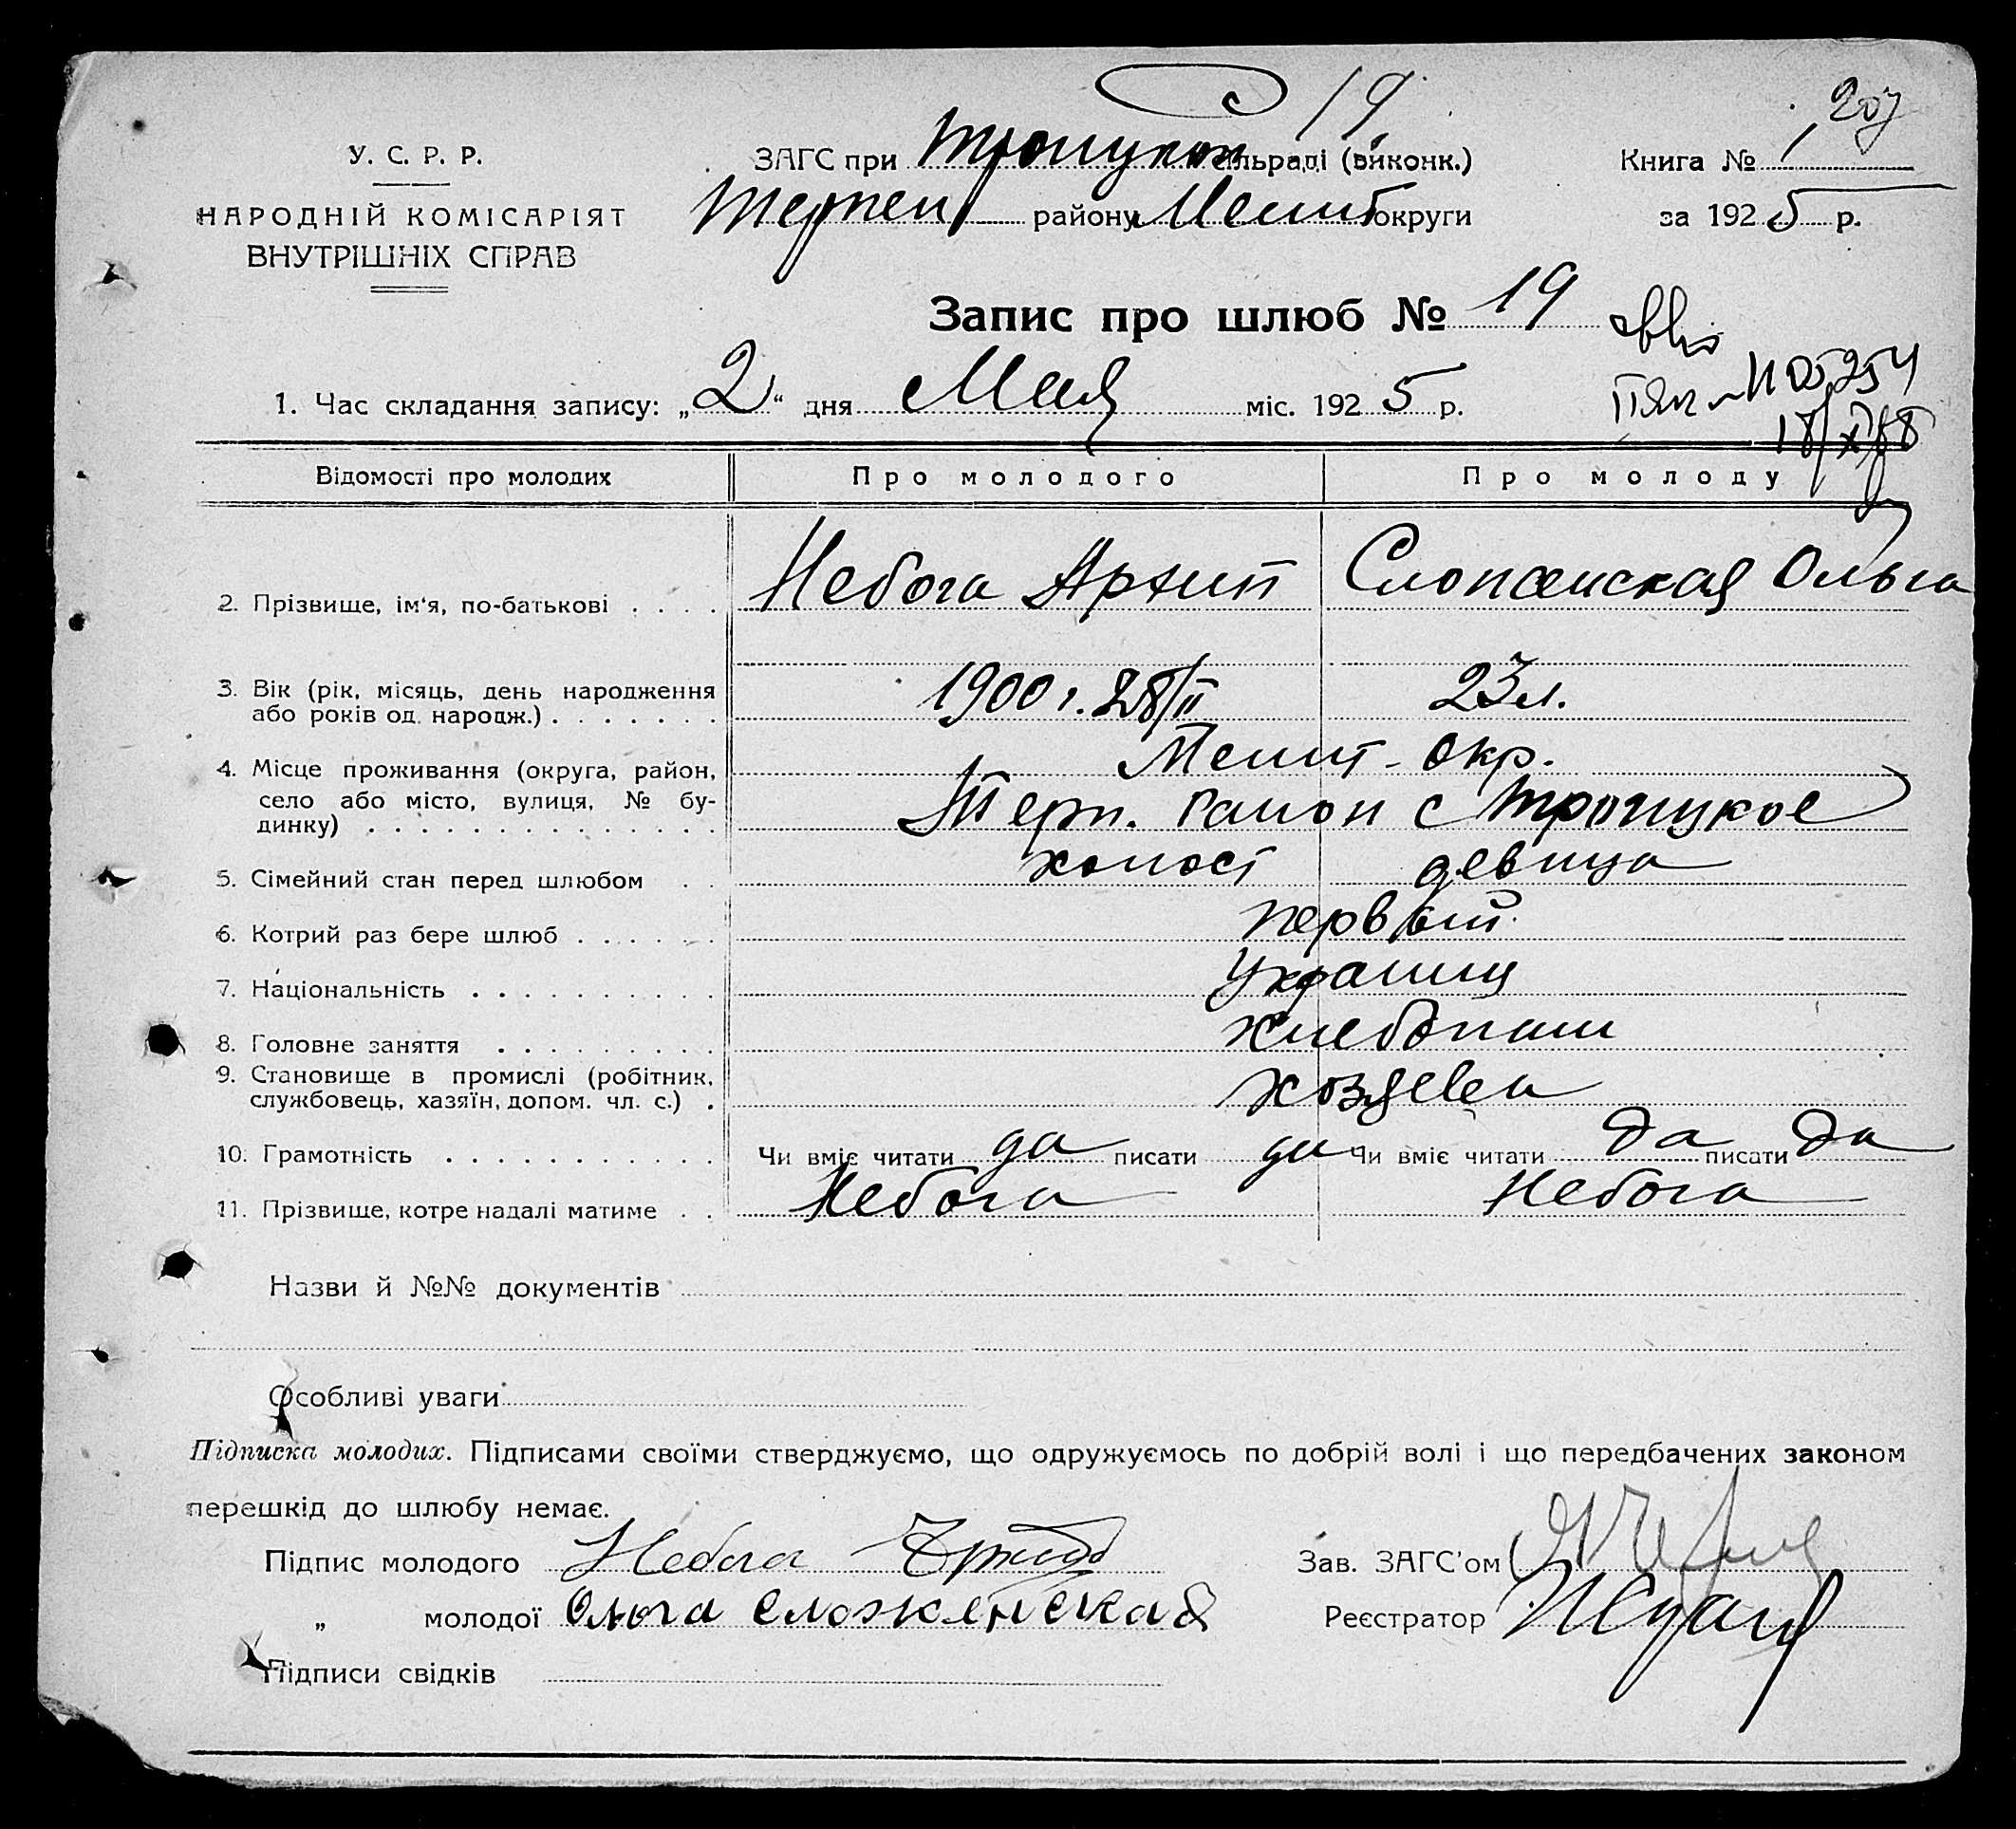 19. 207
У. С. Р. Р. ЗАГС при Троицкой сільраді (виконк.) Книга № 1
НАРОДНІЙ КОМІСАРІЯТ Терпен району Мелит округи за 1925 р.
ВНУТРІШНІХ СПРАВ
Запис про шлюб № 19
1. Час складання запису: „2“ дня Мая міс. 1925 р.
Відомості про молодих Про молодого Про молоду
2. Прізвище, ім'я, по-батькові . . . . Небога Архип Сложенская Ольга
3. Вік (рік, місяць, день народження 1900 г. 28/II 23 л.
або років од. народж.) . . . . . . .
4. Місце проживання (округа, район, Мелит - окр.
село або місто, вулиця, № бу- Терп. район с Троицкое
динку) . . . . . . . . . . . . . .
5. Сімейний стан перед шлюбом . . холост девица
6. Котрий раз бере шлюб . . . . . . первый
7. Національність . . . . . . . . . . Украинц
8. Головне заняття . . . . . . . . . хлебопаш
9. Становище в промислі (робітник,
службовець, хазяїн, допом. чл. с.) .
10. Грамотність . . . . . . . . . . . Чи вміє читати да писати да Чи вміє читати да писати да
11. Прізвище, котре надалі матиме . . Небога Небога
Назви й №№ документів
Особливі уваги
Підписка молодих. Підписами своїми стверджуємо, що одружуємось по добрій волі і що передбачених законом
перешкід до шлюбу немає.
Підпис молодого Небога Зав. ЗАГС'ом
„ молодої Ольга Сложенская Реєстратор
Підписи свідків